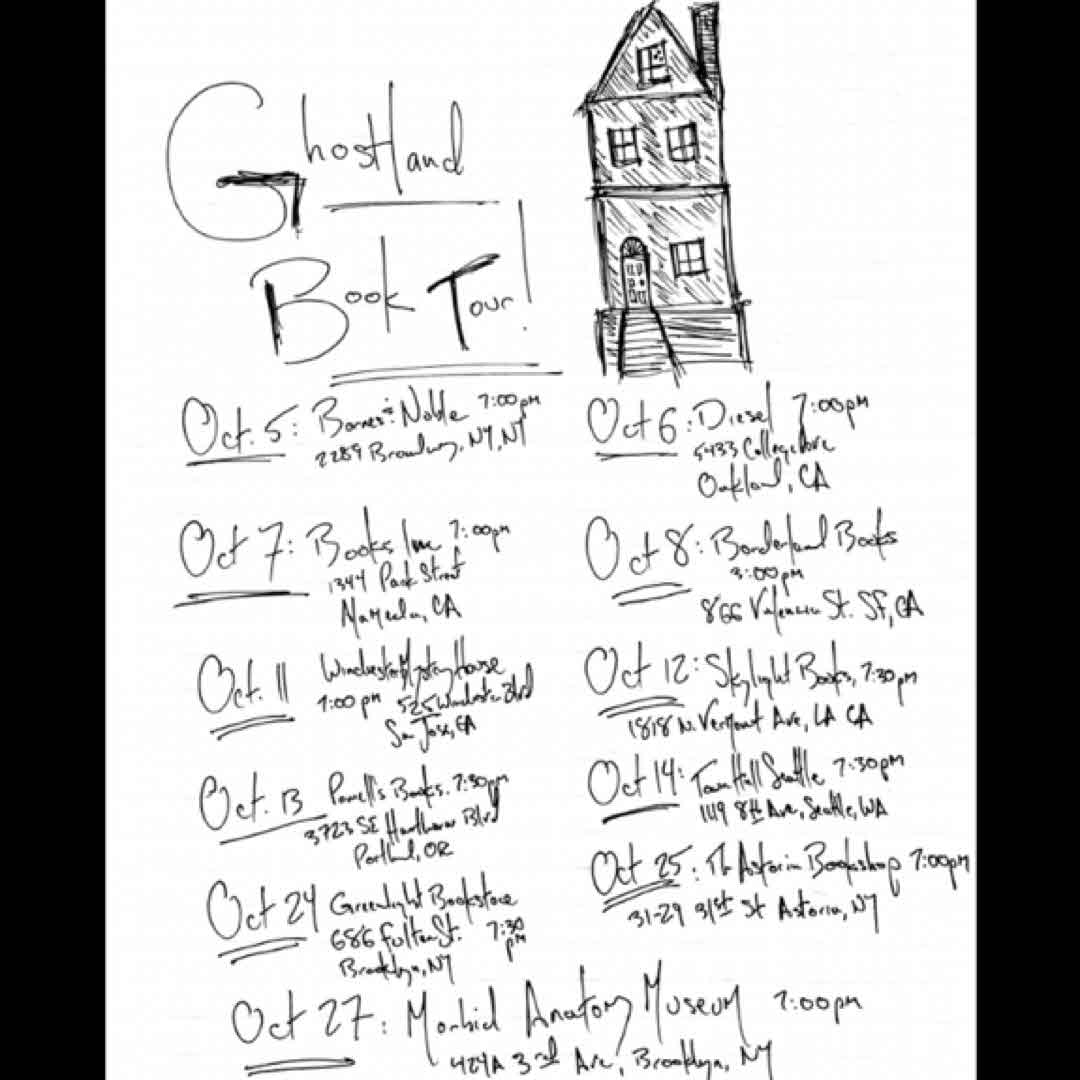 Ghostland
Book Tour!
Oct. 5: Barnes & Noble 7:00pm
2289 Broadway, NY, NY
Oct 6: Diesel 7:00pm
5433 College Ave
Oakland, CA
Oct 7: Books Inc 7:00pm
1344 Park Street
Alameda, CA
Oct 8: Borderland Books
3:00pm
866 Valencia St. SF, CA
Oct. 11 Winchester Mystery House
7:00 pm 525 Winchester Blvd
San Jose, CA
Oct 12: Skylight Books, 7:30pm
1818 N. Vermont Ave, LA CA
Oct. 13 Powell's Books. 7:30pm
3723 SE Hawthorne Blvd
Portland, OR
Oct 14: Town Hall Seattle 7:30pm
1119 8th Ave, Seattle, WA
Oct 24 Greenlight Bookstore
686 Fulton St. 7:30
pm
Brooklyn, NY
Oct 25: The Astoria Bookshop 7:00pm
31-29 31st St Astoria, NY
Oct 27: Morbid Anatomy Museum 7:00pm
424A 3rd Ave, Brooklyn, NY